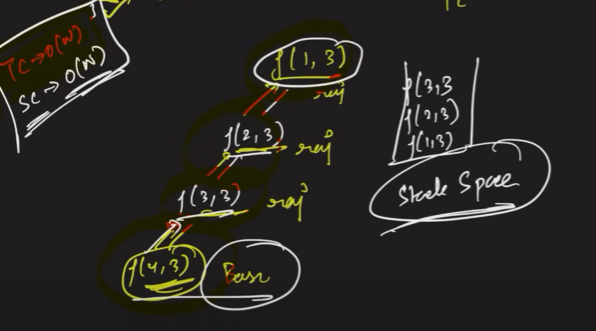 TC
TC → O(N)
SC → O(N)
f(1, 3)
raj
f(2, 3)
raj
f(3, 3)
raj
f(4, 3)
Base
f(3,3
f(2,3)
f(1,3)
Stack Space